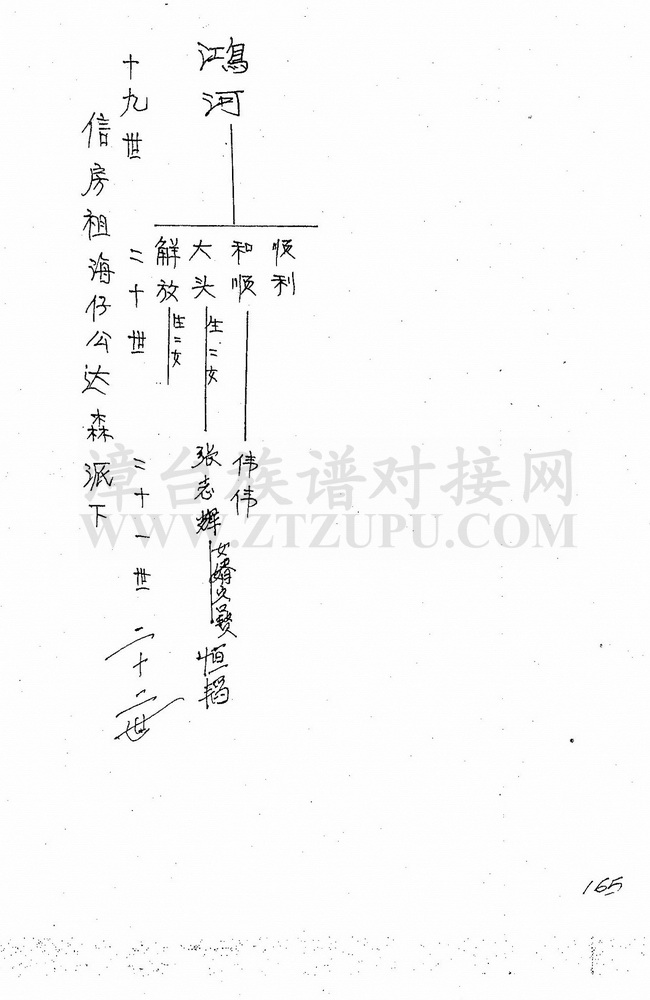 鴻河
顺利
和顺
大头
解放
生二女
生二女
伟伟
张志辉
女婿
恒韬
十九世
二十世
二十一世
二十二世
信房祖海仔公达森派下
漳台族谱对接网
WWW.ZTZUPU.COM
165